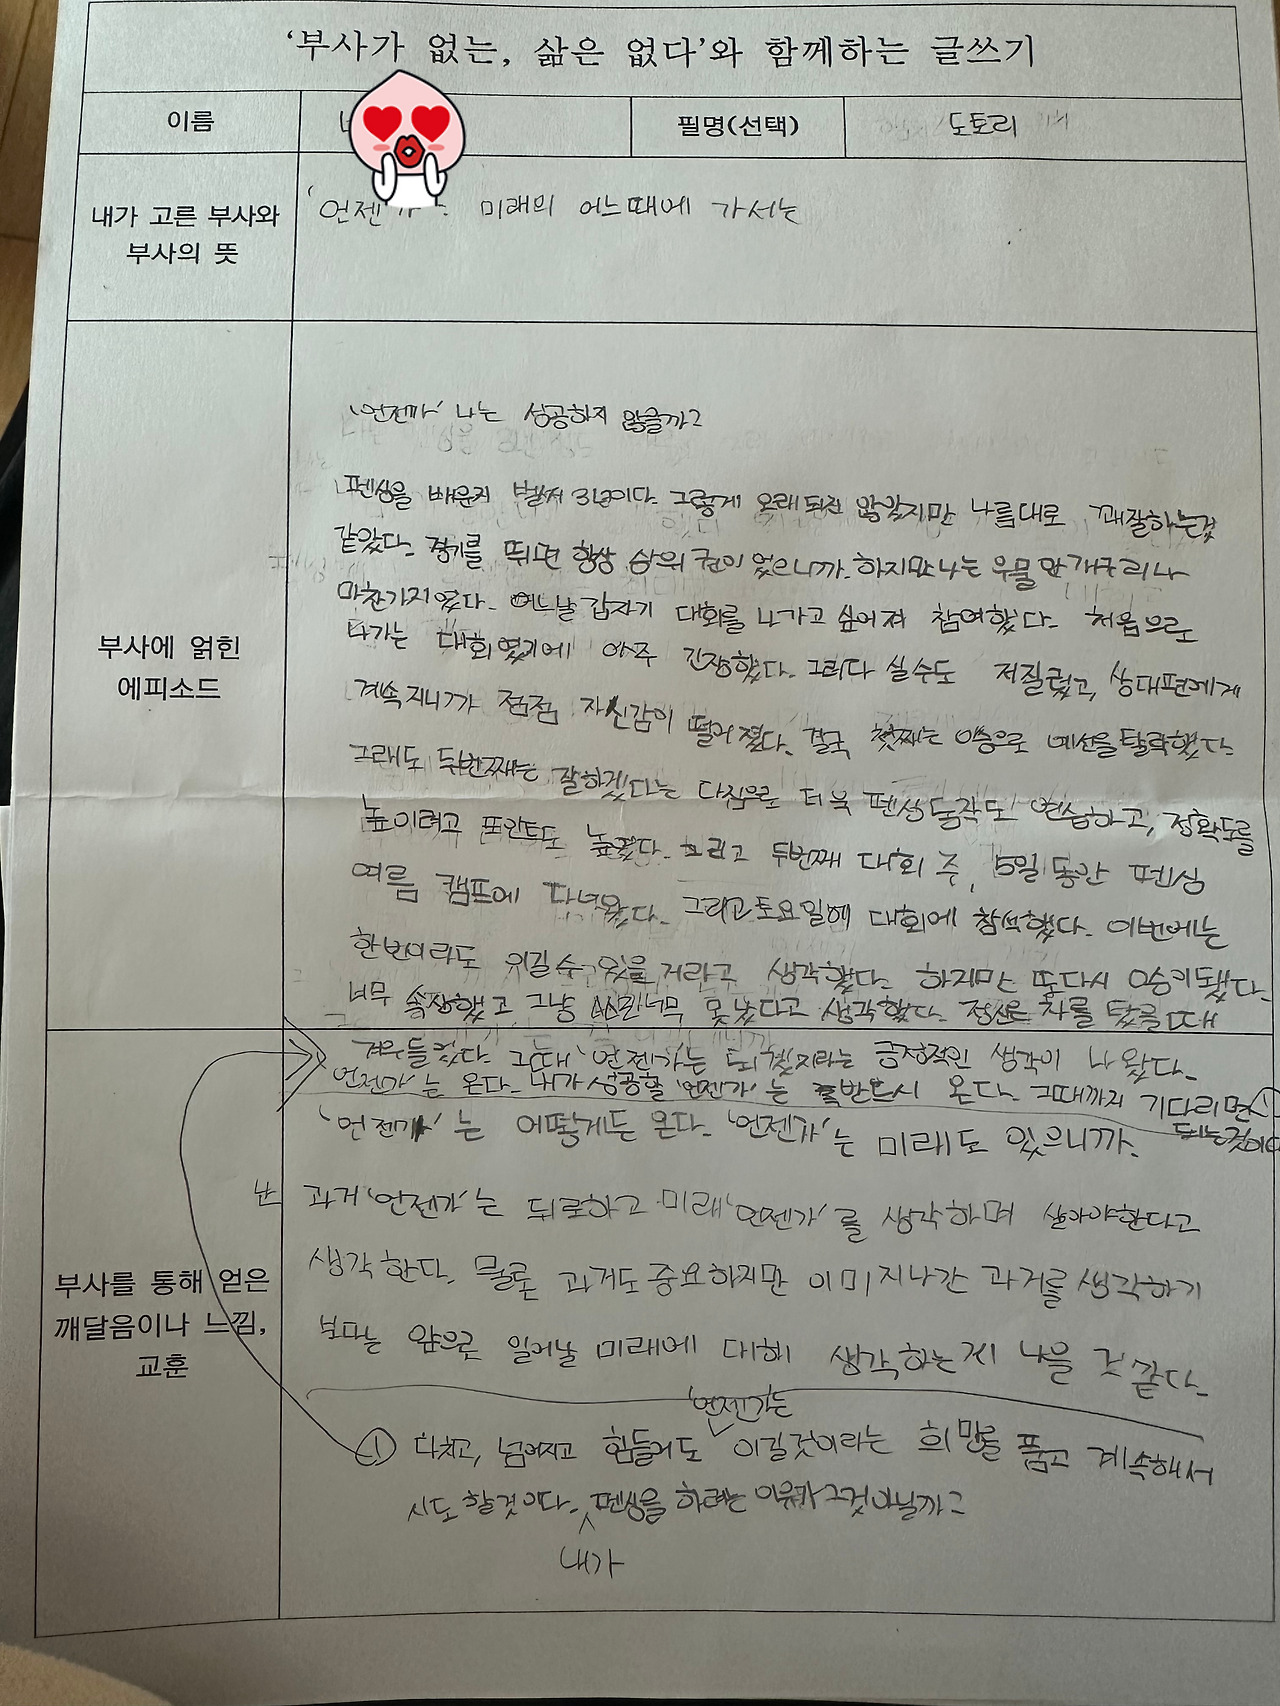 ‘부사가 없는, 삶은 없다’와 함께하는 글쓰기
이름
필명(선택)
도토리
내가 고른 부사와
부사의 뜻
미래의 어느때에 가서는
부사에 얽힌
에피소드
‘언젠가’ 나는 성공하지 않을까?
펜싱을 배운지 벌써 3년이다. 그렇게 오래되진 않았지만 나름대로 꽤잘하는것
같았다. 경기를 뛰면 항상 상위권이었으니까. 하지만 나는 우물안개구리나
마찬가지였다. 어느날 갑자기 대회를 나가고 싶어져 참여했다. 처음으로
나가는 대회였기에 아주 긴장했다. 그러다 실수도 저질렀고, 상대편에게
계속지니가 점점 자신감이 떨어졌다. 결국 첫째는 0승으로 예선을탈락했다
그래도 두번째는 잘하겠다는 다짐으로 더욱 펜싱동작도 연습하고, 정확도를
높이려고 포인트도 높였다. 그리고 두번째 대회 주, 5일동안 펜싱
여름 캠프에 다녀왔다. 그리고토요일에 대회에 참석했다. 이번에는
한번이라도 이길수 있을거라고 생각했다. 하지만 또다시 0승이됐다.
너무 속상했고 그냥 너무 못났다고 생각했다. 차를 탔을때
겨우들었다. 그때 ‘언젠가’는 되겠지라는 긍정적인 생각이 나왔다.
언젠가’는 온다. 내가성공할 ‘언젠가’는 반드시 온다. 그때까지 기다리면 ①
되는것이다
‘언젠가’는 어떻게든 온다. ‘언젠가’는 미래도 있으니까.
부사를 통해 얻은
깨달음이나 느낌,
교훈
난 과거‘언젠가’는 뒤로하고 미래‘언젠가’를 생각하며 살아야한다고
생각한다. 물론 과거도중요하지만 이미지나간 과거를생각하기
보다는 앞으로 일어날 미래에 대해 생각하는게 나을 것 같다.
‘언젠가는
① 다치고, 넘어지고 힘들어도 이길것이라는 희망을 품고 계속해서
시도 할것이다. 펜싱을 하려는 이유가 그것아닐까?
내가